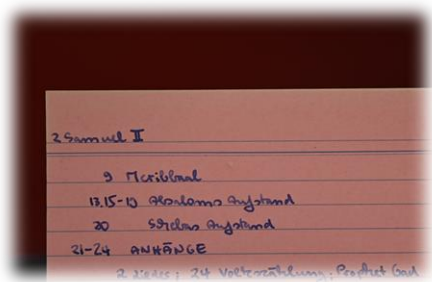 2 Samuel II
9 Meribbaal
13,15-19 Absaloms Aufstand
20 Schebas Aufstand
21-24 ANHÄNGE
2 Lieder; 24 Volkszählung; Prophet Gad